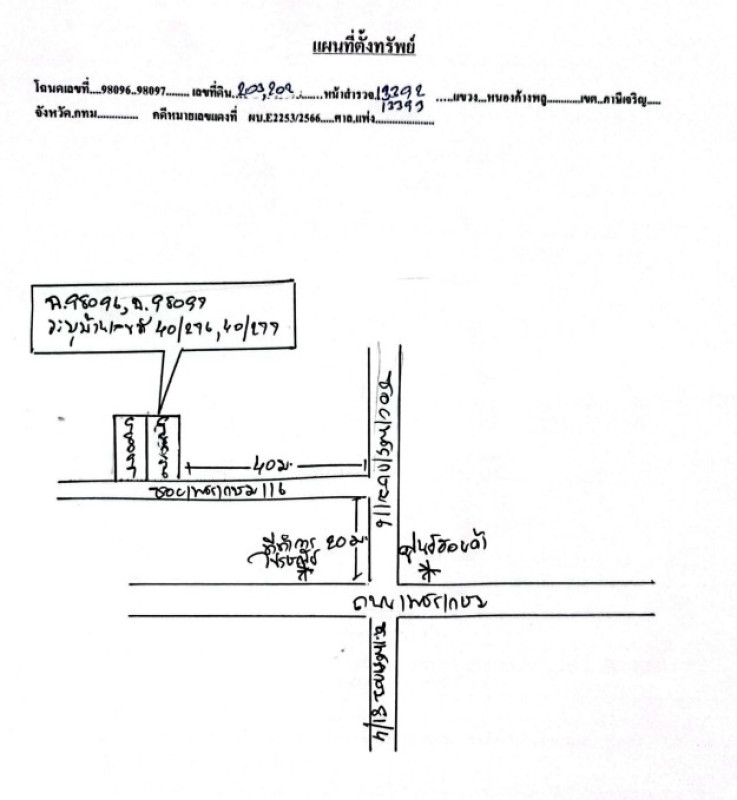 แผนที่ตั้งทรัพย์
โฉนดเลขที่....98096..98097........ เลขที่ดิน..203,202.......หน้าสำรวจ.13292 .....แขวง...หนองค้างพลู............เขต..ภาษีเจริญ.....
13293
จังหวัด.กทม.............. คดีหมายเลขแดงที่ ผบ.E2253/2566.....ศาล.แพ่ง....................
ฉ.98096, ฉ.98097
ระบุบ้านเลขที่ 40/276, 40/277
ฉ.98097
ฉ.98096
40 ม.
ซอยเพชรเกษม 116
ซอยเพชรเกษม 116
ที่ทำการ
ไปรษณีย์
20 ม.
ศูนย์ฮอนด้า
ถนนเพชรเกษม
ซ.เพชรเกษม 81/4